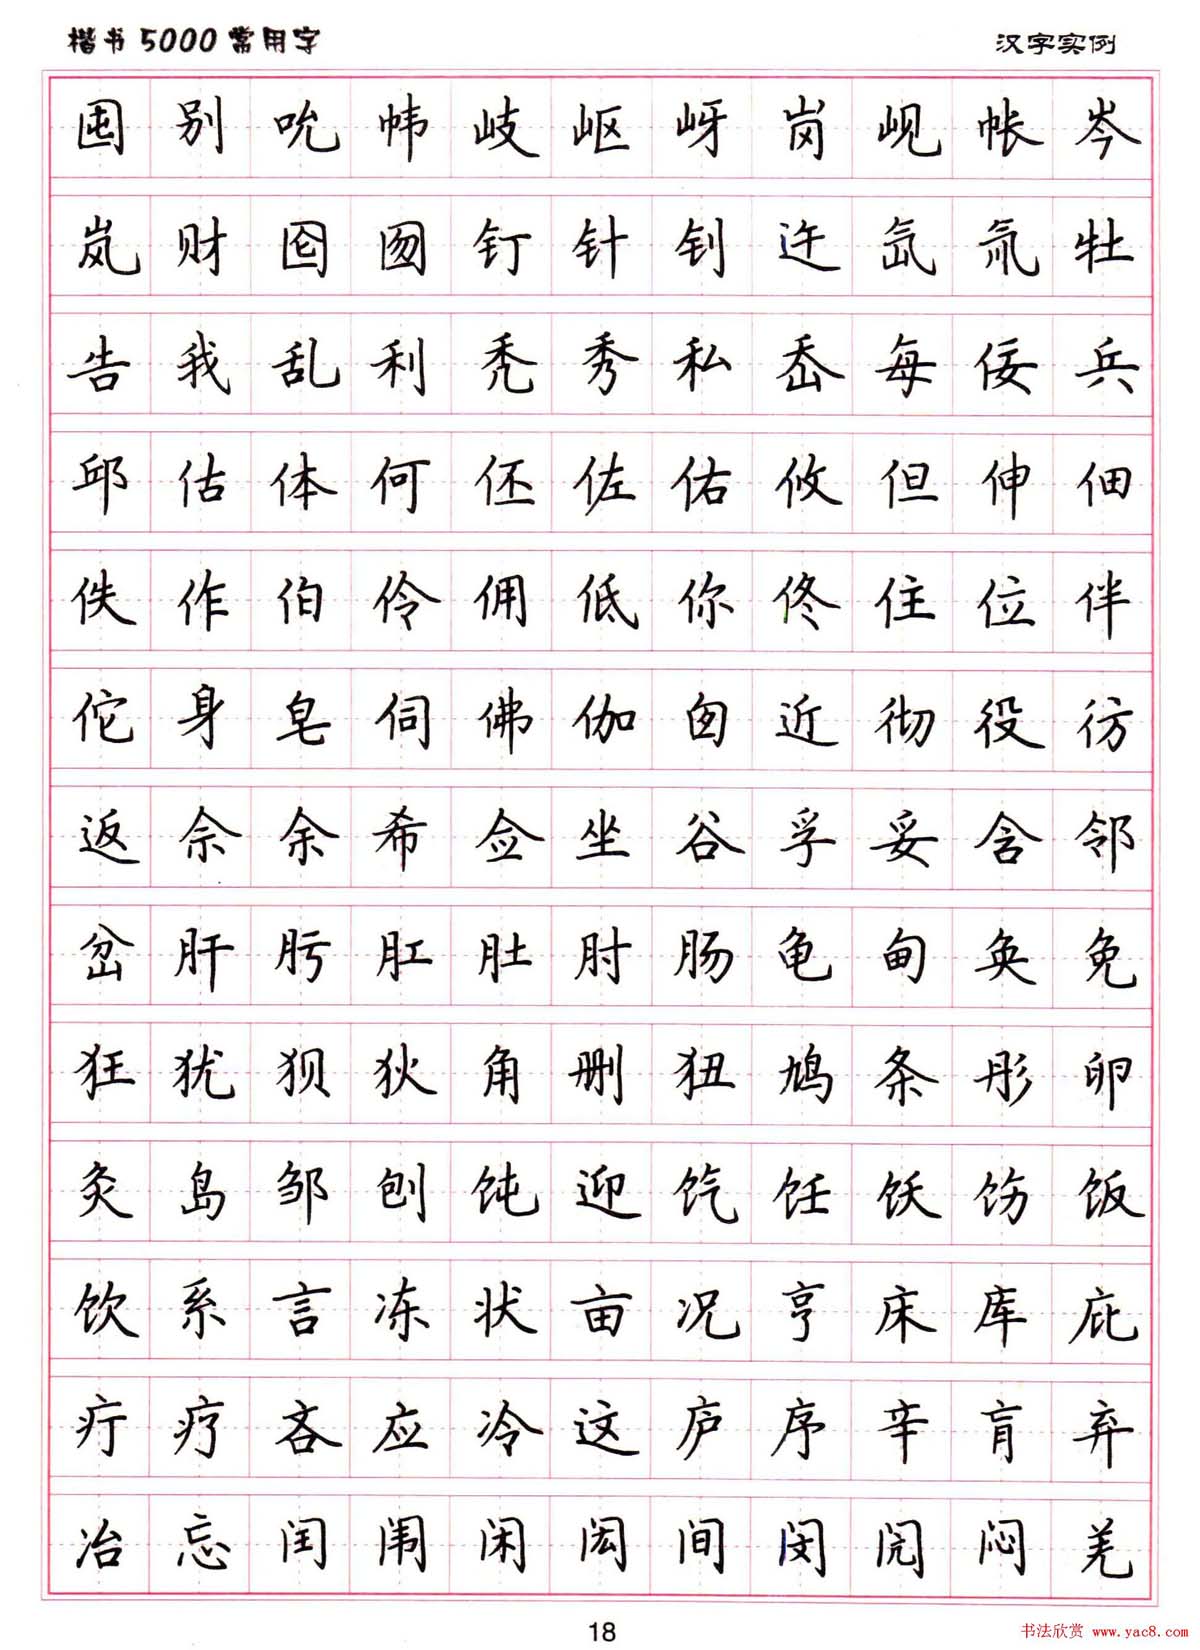 楷书5000常用字 汉字实例
囤别吮帏岐岖岈岗岘帐岑
岚财囵囫钉针钊迕氙氚牡
告我乱利秃秀私岙每佞兵
邱估体何伾佐佑攸但伸佃
佚作伯伶佣低你佟住位伴
佗身皂伺佛伽囱近彻役彷
返佘余希佥坐谷孚妥含邻
岔肝肟肛肚肘肠龟甸奂免
狂犹狈狄角删狃鸠条彤卵
灸岛邹刨饨迎饩饪饫饬饭
饮系言冻状亩况亨床库庇
疔疗吝应冷这庐序辛肓弃
冶忘闰闱闲闳间闵闶闷羌
18
书法欣赏 www.yac8.com